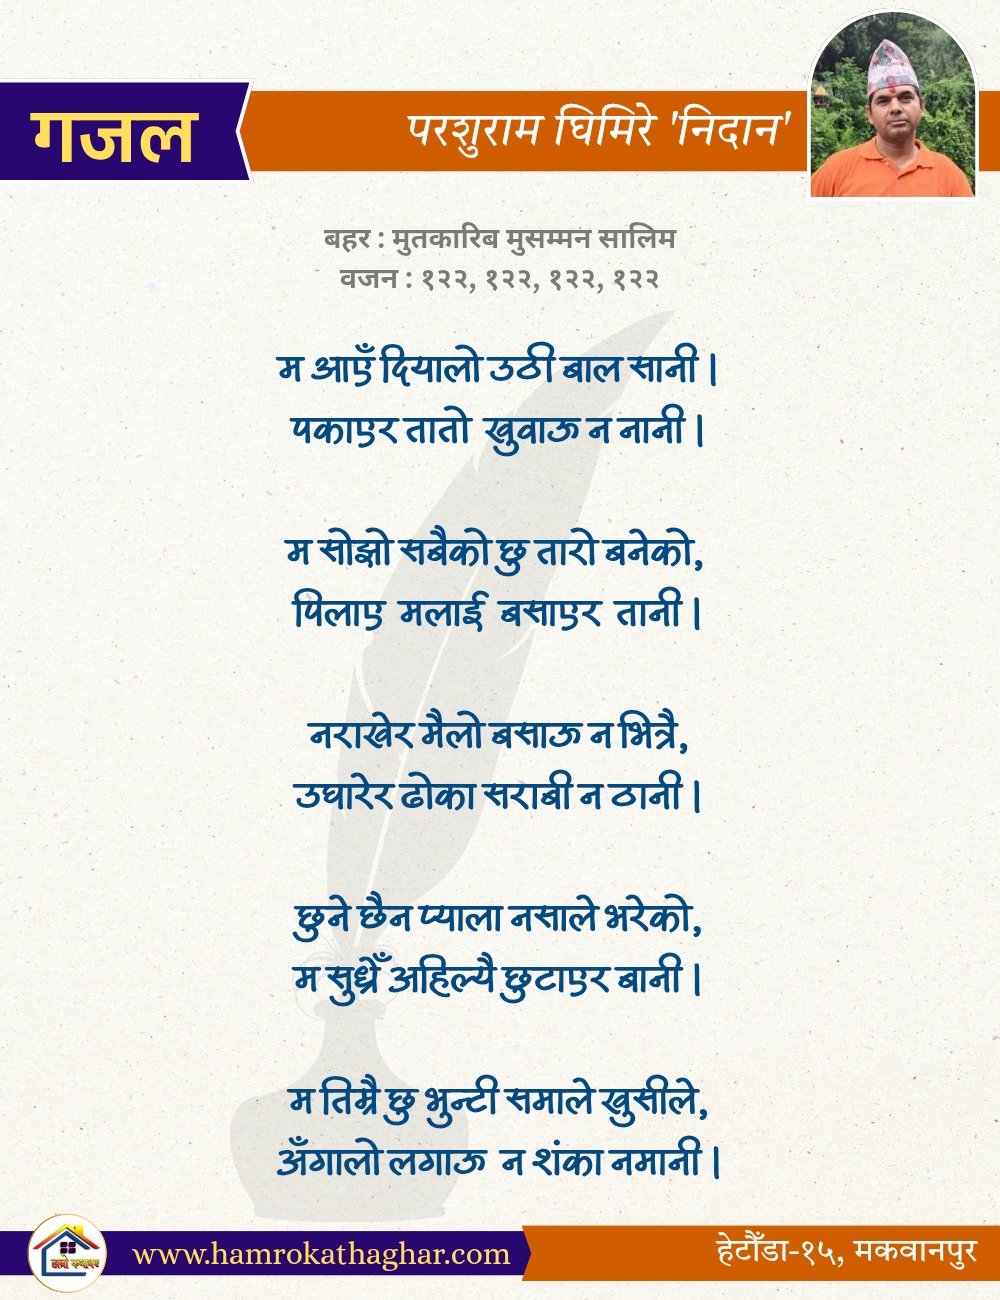 गजल
परशुराम घिमिरे 'निदान'
बहर : मुतकारिब मुसम्मन सालिम
वजन : १२२, १२२, १२२, १२२
म आएँ दियालो उठी बाल सानी |
पकाएर तातो खुवाऊ न नानी |
म सोझो सबैको छु तारो बनेको,
पिलाए मलाई बसाएर तानी |
नराखेर मैलो बसाऊ न भित्रै,
उघारेर ढोका सराबी न ठानी |
छुने छैन प्याला नसाले भरेको,
म सुध्रेँ अहिल्यै छुटाएर बानी |
म तिम्रै छु भुन्टी समाले खुसीले,
अँगालो लगाऊ न शंका नमानी |
हाम्रो कथाघर
www.hamrokathaghar.com
हेटौँडा-१५, मकवानपुर